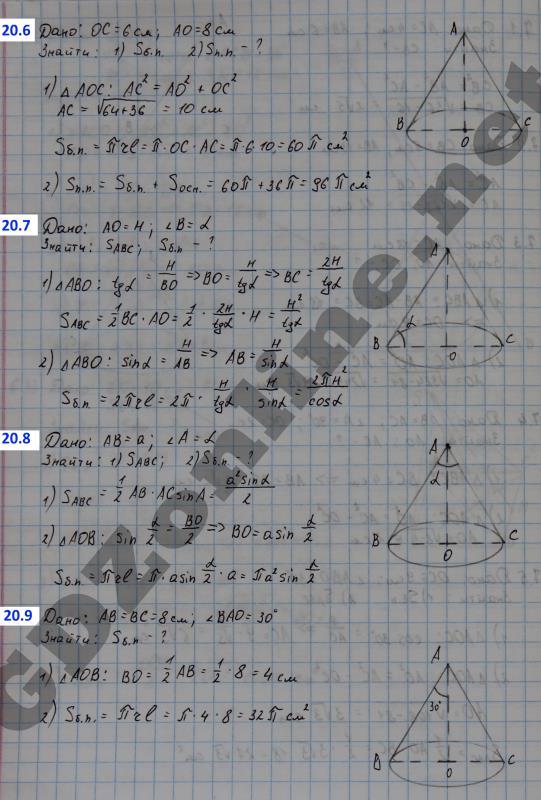 20.6 Дано: OC=6 см; AO=8 см
Знайти: 1) Sб.п. 2) Sп.п. - ?
1) △AOC: AC² = AO² + OC²
AC = √64+36 = 10 см
Sб.п. = πrl = π·OC·AC = π·6·10 = 60π см²
2) Sп.п. = Sб.п. + Sосн. = 60π + 36π = 96π см²
A
B
O
C
20.7 Дано: AO=H; ∠B=α
Знайти: SABC; Sб.п - ?
1) △ABO: tgα = H/BO => BO = H/tgα => BC = 2H/tgα
SABC = 1/2 BC·AO = 1/2 · 2H/tgα · H = H²/tgα
2) △ABO: sinα = H/AB => AB = H/sinα
Sб.п. = 2πrl = 2π · H/tgα · H/sinα = 2πH²/cosα
A
α
B
O
C
20.8 Дано: AB=a; ∠A=α
Знайти: 1) SABC; 2) Sб.п - ?
1) SABC = 1/2 AB·AC sinA = a² sinα/2
2) △AOB: sin α/2 = BO/2 => BO = a sin α/2
Sб.п. = πrl = π·a sin α/2 · a = πa² sin α/2
A
α
B
O
C
20.9 Дано: AB=BC=8см; ∠BAO=30°
Знайти: Sб.п. - ?
1) △AOB: BO = 1/2 AB = 1/2 · 8 = 4 см
2) Sб.п. = πrl = π·4·8 = 32π см²
A
30°
B
O
C
GDZonline.net